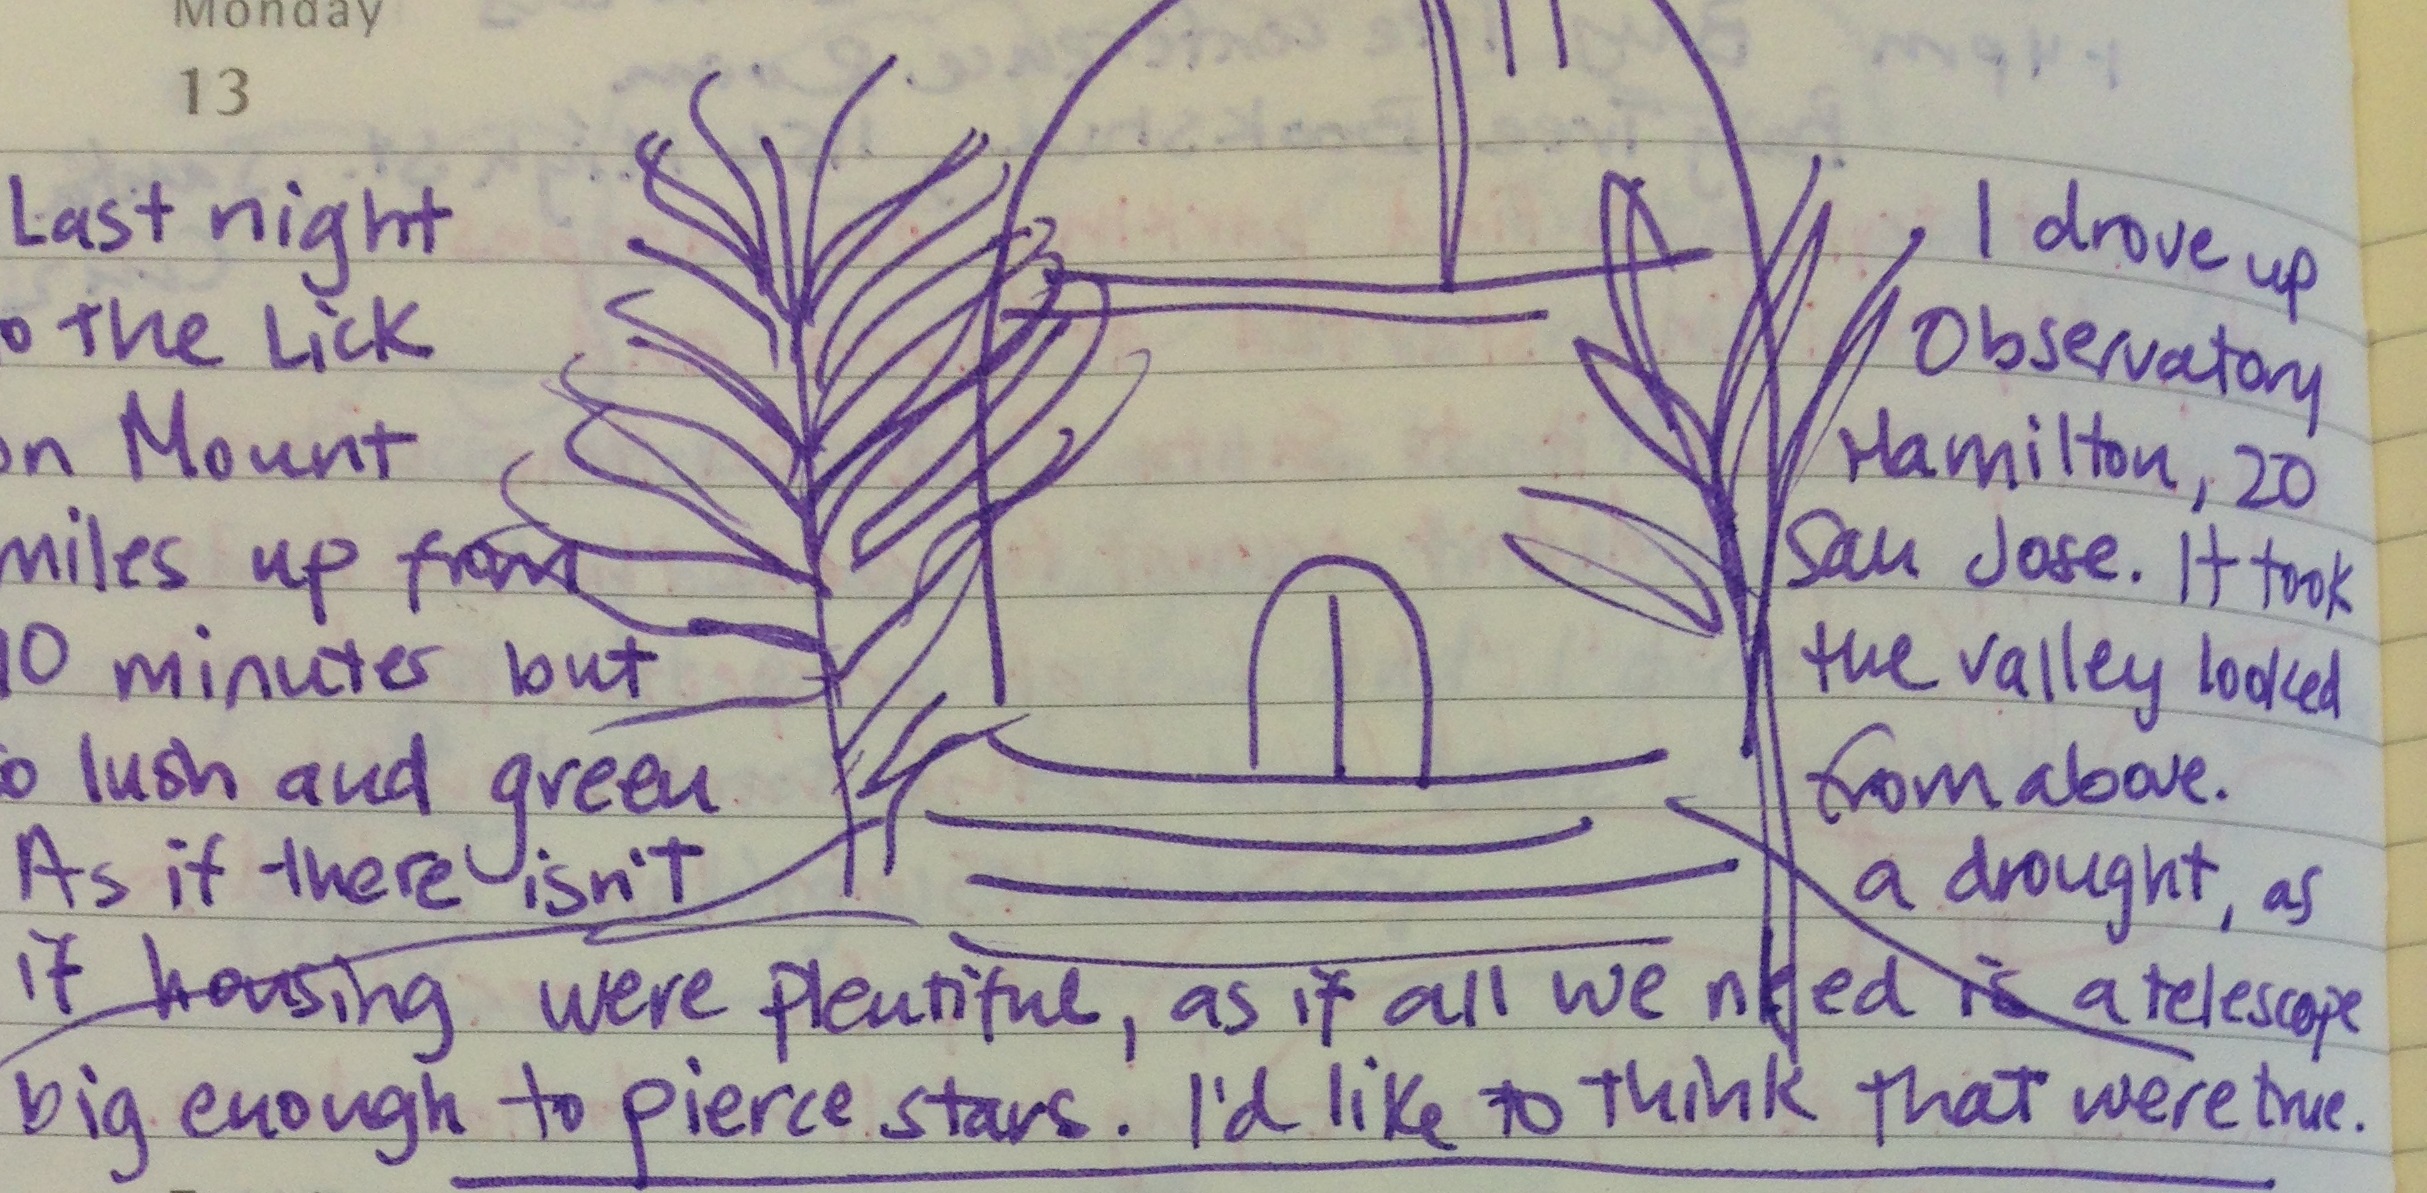 Monday
13
Last night I drove up
o the Lick Observatory
on Mount Hamilton, 20
miles up from San Jose. It took
10 minutes but the valley looked
o lush and green from above.
As if there isn't a drought, as
if housing were plentiful, as if all we need is a telescope
big enough to pierce stars. I'd like to think that were true.